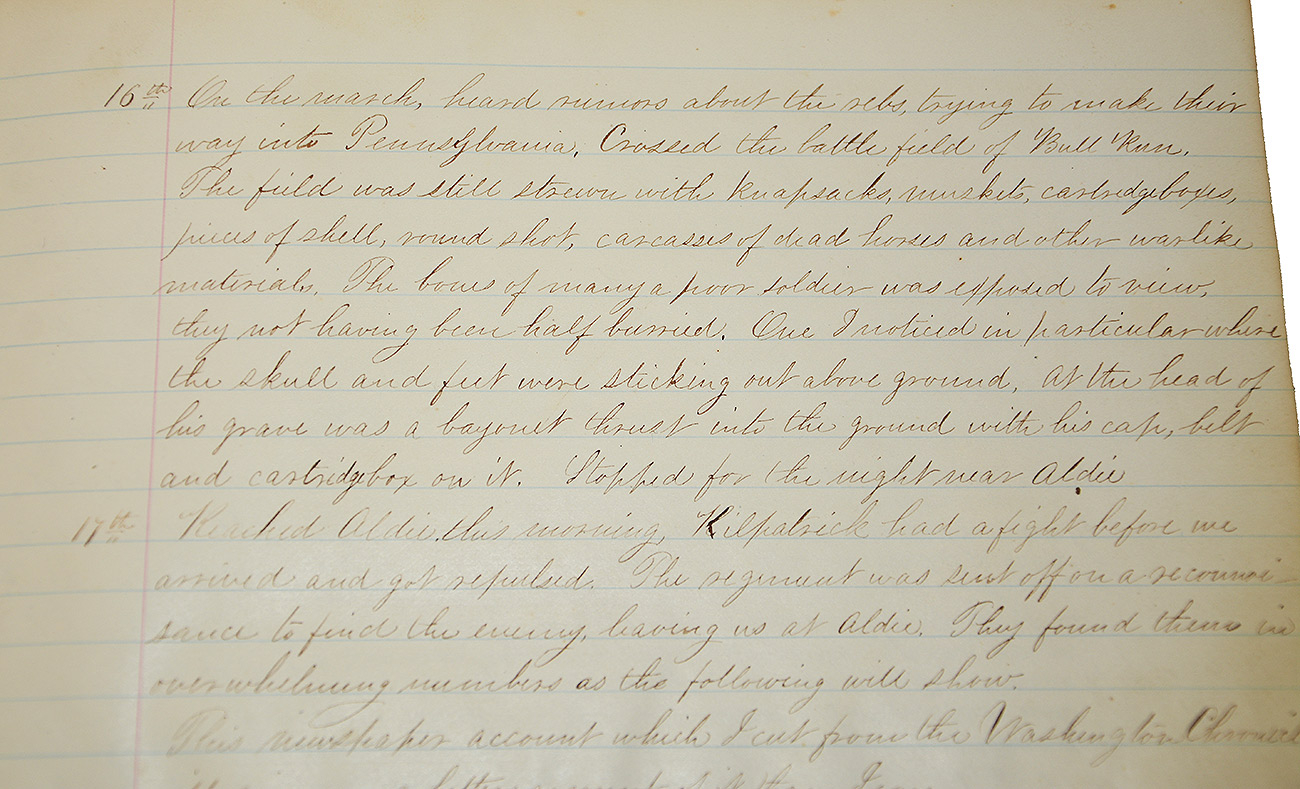 16th On the march, heard rumors about the rebs, trying to make their
way into Pennsylvania. Crossed the battle field of Bull Run.
The field was still strewn with knapsacks, muskets, cartridgeboxes,
pieces of shell, round shot, carcasses of dead horses and other warlike
materials. The bones of many a poor soldier was exposed to view,
they not having been half burried. One I noticed in particular where
the skull and feet were sticking out above ground, at the head of
his grave was a bayonet thrust into the ground with his cap, belt
and cartridgebox on it. Stopped for the night near Aldie
17th Reached Aldie this morning, Kilpatrick had a fight before we
arrived and got repulsed. The regiment was sent off on a reconnoi-
sance to find the enemy, leaving us at Aldie. They found them in
overwhelming numbers as the following will show.
This newspaper account which I cut from the Washington Chronicle
a better account of it than I can